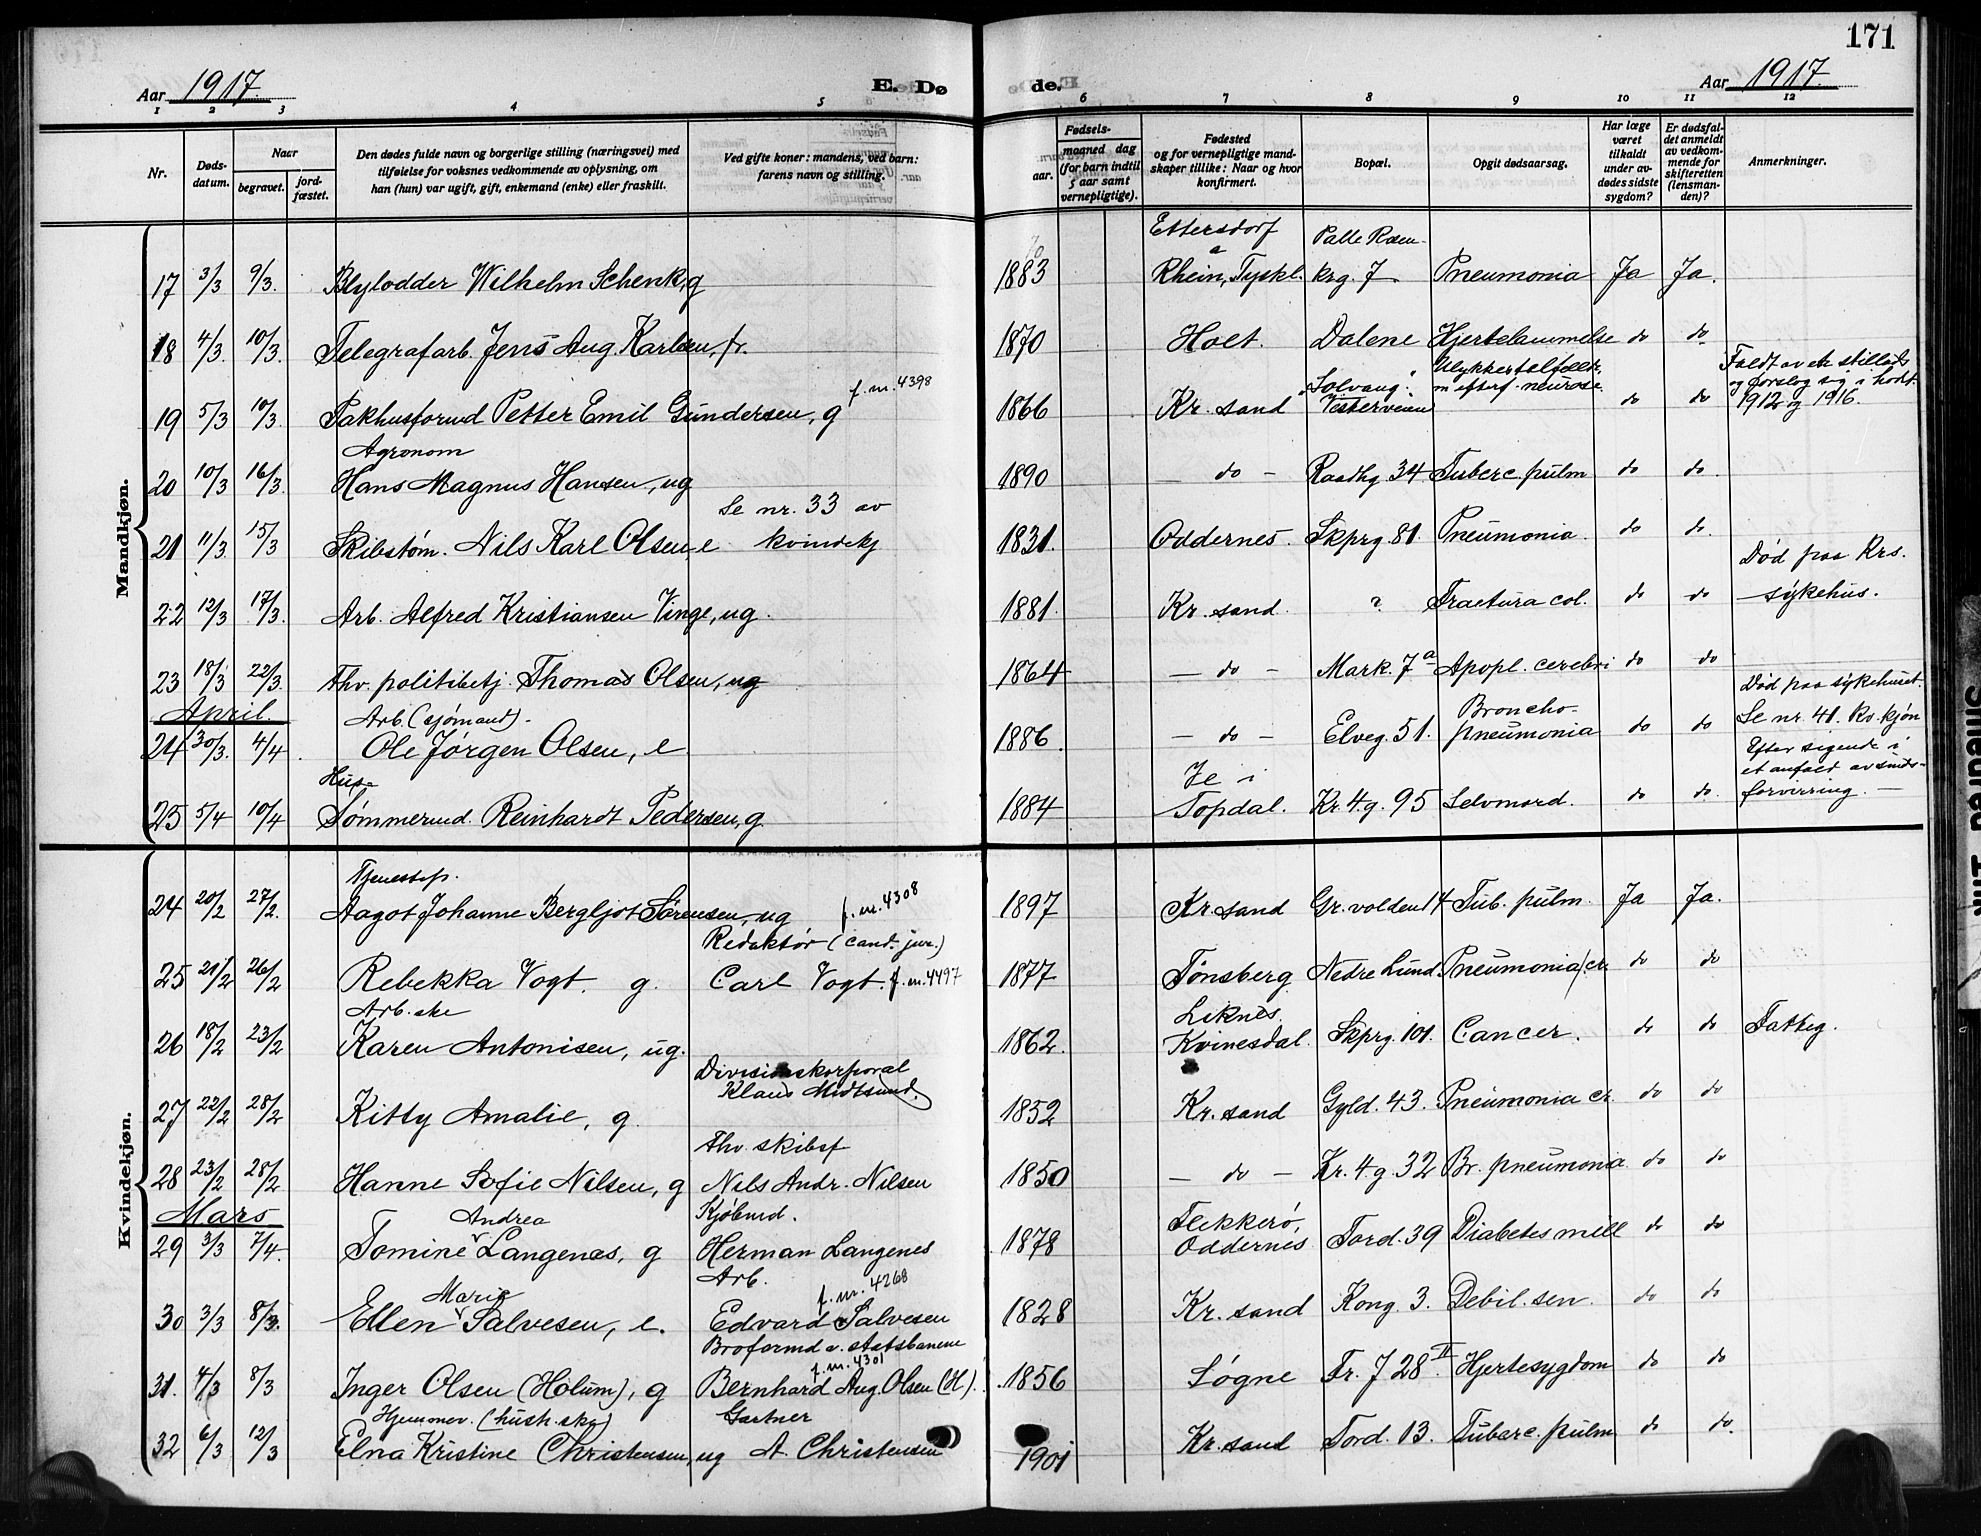 171
Aar 1917. E. Døde. Aar 1917.
1 2 3 4 5 6 7 8 9 10 11 12
Nr. Døds-datum. Naar begravet. jord-fæstet. Den dødes fulde navn og borgerlige stilling (næringsvei) med tilføielse for voksnes vedkommende av oplysning, om han (hun) var ugift, gift, enkemand (enke) eller fraskilt. Ved gifte koner: mandens, ved barn: farens navn og stilling. Fødsels-aar. maaned dag (for barn indtil 5 aar samt vernepligtige). Fødested og for vernepligtige mandskaper tillike: Naar og hvor konfirmert. Bopæl. Opgit dødsaarsag. Har læge været tilkaldt under avdødes sidste sygdom? Er dødsfaldet anmeldt av vedkommende for skifteretten (lensmanden)? Anmerkninger.
Mandkjøn.
Ettersdorf Palle Rosen-
17 3/3 9/3. Blylodder Wilhelm Schenk, g 1883 a Rhein, Tyskl. krg. 7 Pneumonia Ja Ja.
18 4/3. 10/3. Telegrafarb. Jens Aug. Karlsen, fr. 1870 Holt. Dalene Hjertelammelse do do
f. m. 4398 "Solvang". Ulykkestilfælde Faldt av et stillads
m efterf. neurose. og forslog sig i hodet
19 5/3 10/3. Pakhusformd Petter Emil Gundersen, g 1866 Kr. sand Vesterveien do do 1912 og 1916.
Agronom
20 10/3 16/3. Hans Magnus Hansen, ug 1890 — do — Raadhg. 34 Tuberc. pulm do do
Se nr. 33 av
21 11/3 15/3 Skibstøm. Nils Karl Olsen e kvindekj 1831. Oddernes. Skprg. 81. Pneumonia. do do.
Død paa Krs.
22 12/3 17/3. Arb. Alfred Kristiansen Vinge, ug. 1881. Kr. sand. ? Fractura col. do do sykehus.
23 18/3 22/3. Fhv. politibetj. Thomas Olsen, ug 1864 — do — Mark. 7a Apopl. cerebri do do
Død paa sykehuset.
April. Arb. (sjømand). Broncho- Se nr. 41. Kv. kjøn
24 30/3. 4/4. Ole Jørgen Olsen, e 1886. — do — Elveg. 51. pneumonia do do
Efter sigende i
Hus- Ve i et anfald av sinds-
25 5/4 10/4 Tømmermd. Reinhardt Pedersen, g. 1884 Topdal. Kr. 4. g. 95 Selvmord. do do. forvirring. —
Kvindekjøn.
Tjenestep.
24 20/2 27/2. Aagot Johanne Bergljot Sørensen, ug f. m. 4308 1897 Kr. sand Gr. volden 14 Tub. pulm. Ja Ja.
Redaktør (cand. jur.)
25 21/2 26/2 Rebekka Vogt. g. Carl Vogt. f. m. 4497 1877 Tønsberg Nedre Lund. Pneumonia cr. do do
Arb. ske Liknes.
26 18/2 23/2 Karen Antonisen, ug. 1862. Kvinesdal. Skprg. 101. Cancer. do do Fattig.
Divisionskorporal
Klaus Midtsund.
27 22/2 28/2 Kitty Amalie, g. 1852 Kr. sand Gyld. 43. Pneumonia cr. do do
Fhv. skibsf
28 23/2 28/2 Hanne Sofie Nilsen, g Nils Andr. Nilsen 1850 — do — Kr. 4. g 32 Br. pneumonia do do
Mars Andrea Kjøbmd. Flekkerø,
29 3/3 7/4. Tomine Langenæs, g Herman Langenes 1878 Oddernes Tord. 39 Diabetes mell do do
Marie Arb. f. m. 4268
30 3/3 8/3. Ellen Salvesen, e. Edvard Salvesen 1828 Kr. sand Kong. 3. Debil. sen. do do
Broformd v. statsbanene
f. m. 4301
31. 4/3 8/3 Inger Olsen (Holum), g Bernhard Aug. Olsen (H). 1856 Søgne Fr. 7 28 II Hjertesygdom do do
Hjemmev. (hush. sk.) Gartner
32 6/3 12/3 Elna Kristine Christensen, ug A. Christensen 1901 Kr. sand Tord. 13. Tuberc. pulm do do.